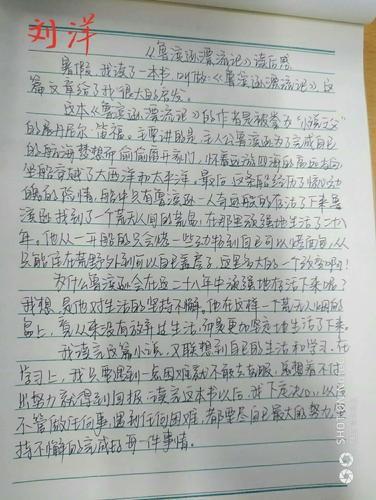 刘洋
《鲁滨逊漂流记》读后感
暑假,我读了一本书,叫做《鲁滨逊漂流记》,这
篇文章给了我很大的启发。
这本《鲁滨逊漂流记》的作者是被誉为"小说之父"
的展丹尼尔·笛福。主要讲的是:主人公鲁滨逊为了完成自己
的航海梦想而偷偷离开家门,怀着远游四海的高远志向,
坐船穿越了大西洋和太平洋。最后,这条船经历了惊心动
魄的险情,船中只有鲁滨逊一人奇迹般的存活了下来。鲁
滨逊找到了一个荒无人烟的荒岛,在那里顽强地生活了二十八
年。他从一开始的只会烤一些动物到自己可以烤面包,从
只能住在荒野外到可以自己盖房子,这是多大的一个改变啊!
为什么鲁滨逊会在这二十八年中顽强地存活下来呢?
我想,是他对生活的坚持不懈。他在这样一个荒无人烟的
岛上,看从来没有放弃过生活,而是更加坚定地生活了下来。
我读完这篇小说,又联想到自己的生活和学习。在
学习上,我只要遇到一点困难就不敢去克服,总想着不付
出努力就得到回报。读完这本书以后,我下定决心,以后
不管做任何事,遇到任何困难,都要尽自己最大的努力,坚
持不懈的完成好每一件事情。
SHOT ON